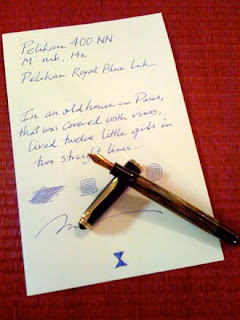 Pelikan 400 NN
M nib, 14k
Pelikan Royal Blue Ink
In an old house in Paris,
that was covered with vines,
lived twelve little girls in
two straight lines...